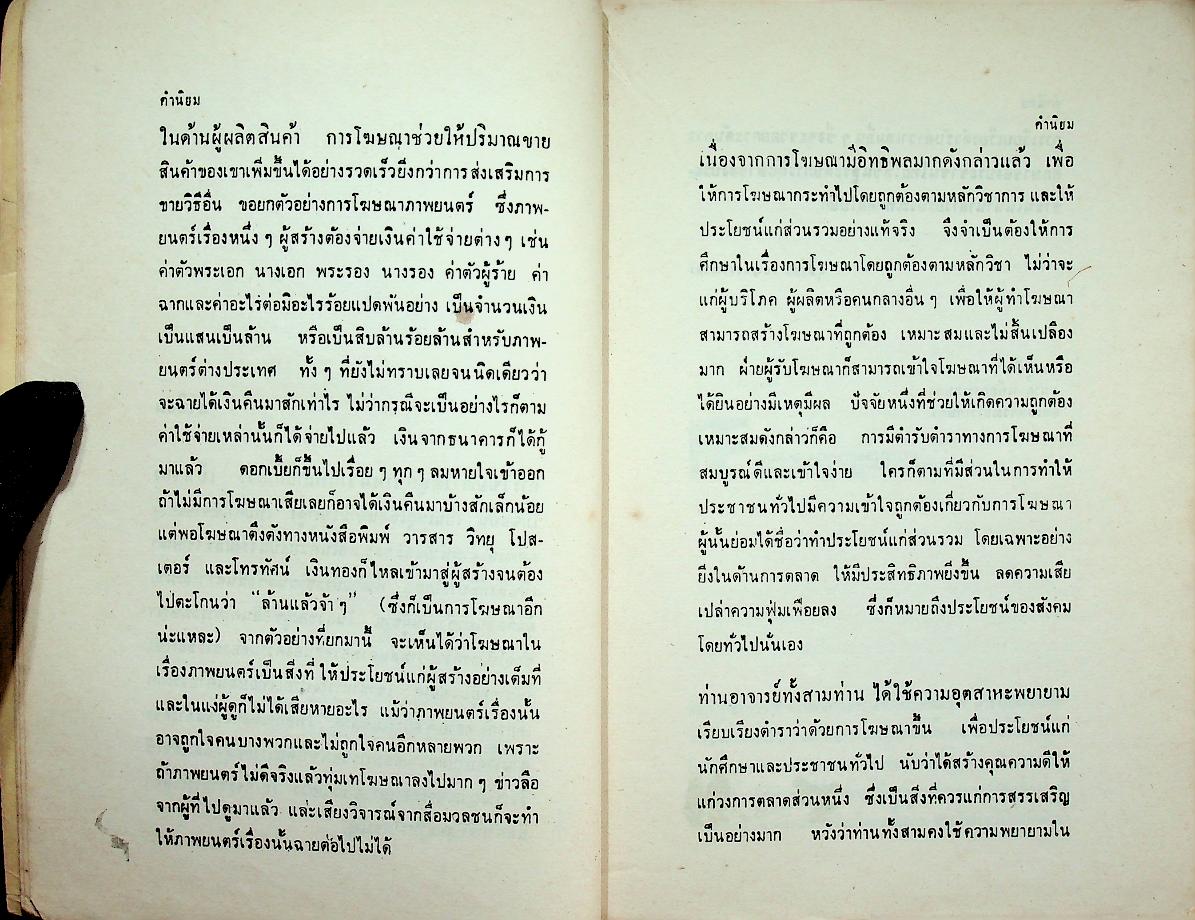 คำนิยม
ในด้านผู้ผลิตสินค้า การโฆษณาช่วยให้ปริมาณขาย
สินค้าของเขาเพิ่มขึ้นได้อย่างรวดเร็วยิ่งกว่าการส่งเสริมการ
ขายวิธีอื่น ขอยกตัวอย่างการโฆษณาภาพยนตร์ ซึ่งภาพ-
ยนตร์เรื่องหนึ่ง ๆ ผู้สร้างต้องจ่ายเงินค่าใช้จ่ายต่าง ๆ เช่น
ค่าตัวพระเอก นางเอก พระรอง นางรอง ค่าตัวผู้ร้าย ค่า
ฉากและค่าอะไรต่อมิอะไรร้อยแปดพันอย่าง เป็นจำนวนเงิน
เป็นแสนเป็นล้าน หรือเป็นสิบล้านร้อยล้านสำหรับภาพ-
ยนตร์ต่างประเทศ ทั้ง ๆ ที่ยังไม่ทราบเลยจนนิดเดียวว่า
จะฉายได้เงินคืนมาสักเท่าไร ไม่ว่ากรณีจะเป็นอย่างไรก็ตาม
ค่าใช้จ่ายเหล่านั้นก็ได้จ่ายไปแล้ว เงินจากธนาคารก็ได้กู้
มาแล้ว ดอกเบี้ยก็ขึ้นไปเรื่อย ๆ ทุก ๆ ลมหายใจเข้าออก
ถ้าไม่มีการโฆษณาเสียเลยก็อาจได้เงินคืนมาบ้างสักเล็กน้อย
แต่พอโฆษณาตึงตังทางหนังสือพิมพ์ วารสาร วิทยุ โปส-
เตอร์ และโทรทัศน์ เงินทองก็ไหลเข้ามาสู่ผู้สร้างจนต้อง
ไปตะโกนว่า "ล้านแล้วจ้า ๆ" (ซึ่งก็เป็นการโฆษณาอีก
น่ะแหละ) จากตัวอย่างที่ยกมานี้ จะเห็นได้ว่าโฆษณาใน
เรื่องภาพยนตร์เป็นสิ่งที่ ให้ประโยชน์แก่ผู้สร้างอย่างเต็มที่
และในแง่ผู้ดูก็ไม่ได้เสียหายอะไร แม้ว่าภาพยนตร์เรื่องนั้น
อาจถูกใจคนบางพวกและไม่ถูกใจคนอีกหลายพวก เพราะ
ถ้าภาพยนตร์ไม่ดีจริงแล้วทุ่มเทโฆษณาลงไปมาก ๆ ข่าวลือ
จากผู้ที่ไปดูมาแล้ว และเสียงวิจารณ์จากสื่อมวลชนก็จะทำ
ให้ภาพยนตร์เรื่องนั้นฉายต่อไปไม่ได้
คำนิยม
เนื่องจากการโฆษณามีอิทธิพลมากดังกล่าวแล้ว เพื่อ
ให้การโฆษณากระทำไปโดยถูกต้องตามหลักวิชาการ และให้
ประโยชน์แก่ส่วนรวมอย่างแท้จริง จึงจำเป็นต้องให้การ
ศึกษาในเรื่องการโฆษณาโดยถูกต้องตามหลักวิชา ไม่ว่าจะ
แก่ผู้บริโภค ผู้ผลิตหรือคนกลางอื่น ๆ เพื่อให้ผู้ทำโฆษณา
สามารถสร้างโฆษณาที่ถูกต้อง เหมาะสมและไม่สิ้นเปลือง
มาก ฝ่ายผู้รับโฆษณาก็สามารถเข้าใจโฆษณาที่ได้เห็นหรือ
ได้ยินอย่างมีเหตุมีผล ปัจจัยหนึ่งที่ช่วยให้เกิดความถูกต้อง
เหมาะสมดังกล่าวก็คือ การมีตำรับตำราทางการโฆษณาที่
สมบูรณ์ดีและเข้าใจง่าย ใครก็ตามที่มีส่วนในการทำให้
ประชาชนทั่วไปมีความเข้าใจถูกต้องเกี่ยวกับการโฆษณา
ผู้นั้นย่อมได้ชื่อว่าทำประโยชน์แก่ส่วนรวม โดยเฉพาะอย่าง
ยิ่งในด้านการตลาด ให้มีประสิทธิภาพยิ่งขึ้น ลดความเสีย
เปล่าความฟุ่มเฟือยลง ซึ่งก็หมายถึงประโยชน์ของสังคม
โดยทั่วไปนั่นเอง
ท่านอาจารย์ทั้งสามท่าน ได้ใช้ความอุตสาหะพยายาม
เรียบเรียงตำราว่าด้วยการโฆษณาขึ้น เพื่อประโยชน์แก่
นักศึกษาและประชาชนทั่วไป นับว่าได้สร้างคุณความดีให้
แก่วงการตลาดส่วนหนึ่ง ซึ่งเป็นสิ่งที่ควรแก่การสรรเสริญ
เป็นอย่างมาก หวังว่าท่านทั้งสามคงใช้ความพยายามใน